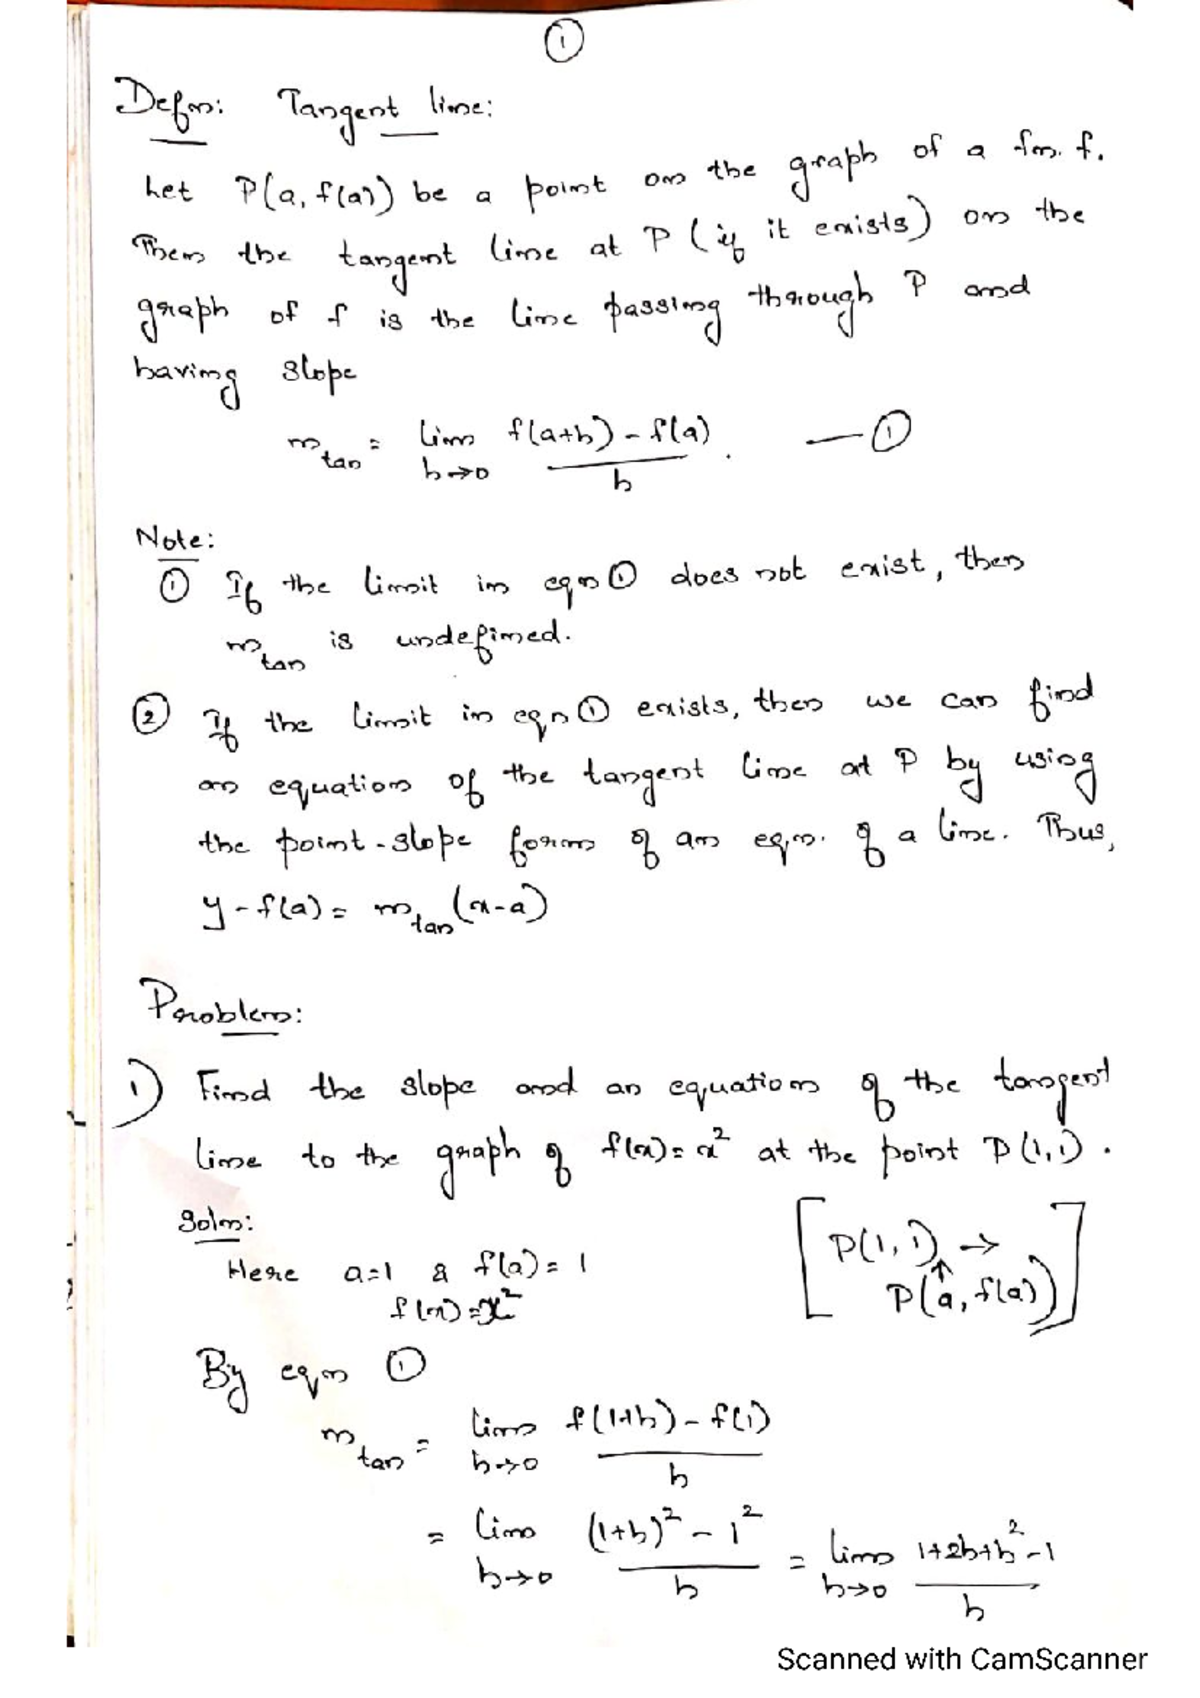 ①
Defn: Tangent line:
Let P(a, f(a)) be a point on the graph of a fn. f.
Then the tangent line at P (if it exists) on the
graph of f is the line passing through P and
having slope
m_tan = lim h→0 (f(a+h) - f(a))/h. —①
Note:
① If the limit in eqn ① does not exist, then
m_tan is undefined.
② If the limit in eqn ① exists, then we can find
an equation of the tangent line at P by using
the point-slope form of an eqn. of a line. Thus,
y - f(a) = m_tan (x-a)
Problem:
1) Find the slope and an equation of the tangent
line to the graph of f(x) = x² at the point P(1,1).
Soln:
Here a=1 & f(a) = 1
f(x) = x²
[P(1,1) →
P(a, f(a))]
By eqn ①
m_tan = lim h→0 (f(1+h) - f(1))/h
= lim h→0 ((1+h)² - 1²)/h = lim h→0 (1+2h+h²-1)/h
Scanned with CamScanner